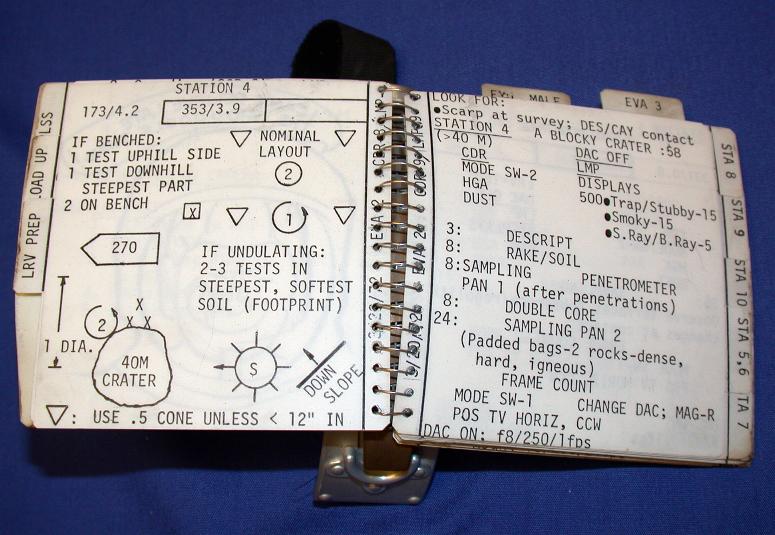 STATION 4
173/4.2 353/3.9
IF BENCHED:
1 TEST UPHILL SIDE
1 TEST DOWNHILL
STEEPEST PART
2 ON BENCH
NOMINAL
LAYOUT
2
X
1
270
IF UNDULATING:
2-3 TESTS IN
STEEPEST, SOFTEST
SOIL (FOOTPRINT)
X
2 X X
1 DIA.
40M
CRATER
S
DOWN
SLOPE
: USE .5 CONE UNLESS < 12" IN
LRV PREP
LOAD UP
LSS
EVA 2
EVA 3
LOOK FOR:
•Scarp at survey; DES/CAY contact
STATION 4 A BLOCKY CRATER :58
(>40 M)
CDR DAC OFF
LMP
MODE SW-2 DISPLAYS
HGA 500•Trap/Stubby-15
DUST •Smoky-15
•S.Ray/B.Ray-5
3: DESCRIPT
8: RAKE/SOIL
8:SAMPLING PENETROMETER
PAN 1 (after penetrations)
8: DOUBLE CORE
24: SAMPLING PAN 2
(Padded bags-2 rocks-dense,
hard, igneous)
FRAME COUNT
MODE SW-1 CHANGE DAC; MAG-R
POS TV HORIZ, CCW
DAC ON: f8/250/1fps
STA 8
STA 9
STA 10
STA 5,6
TA 7